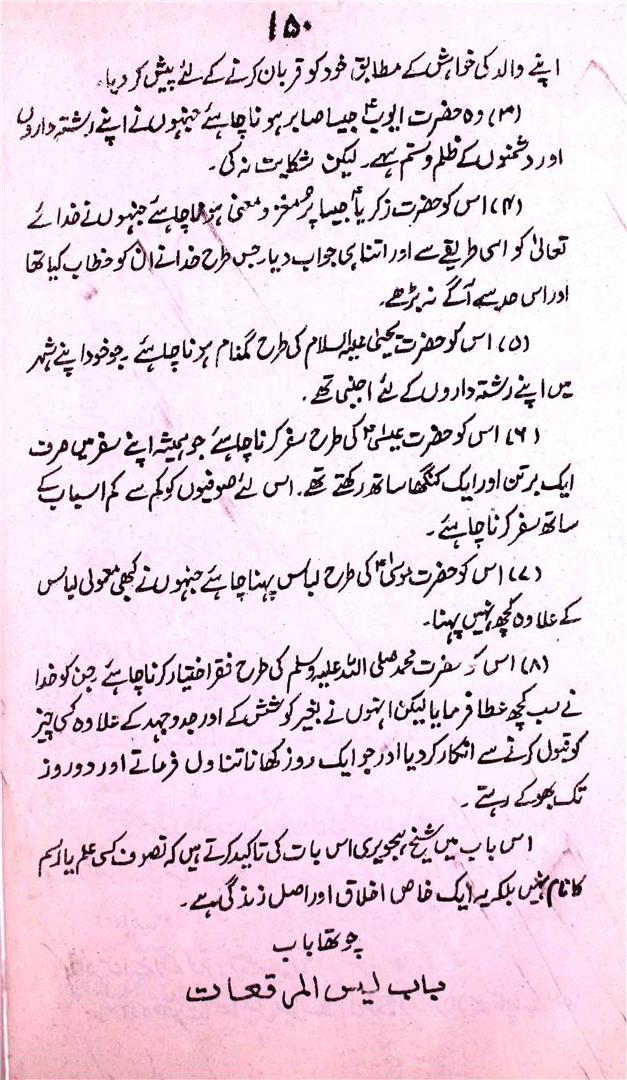 ۱۵۰
اپنے والد کی خواہش کے مطابق خود کو قربان کرنے کے لئے پیش کر دیا۔
(۳) وہ حضرت ایوبؑ جیسا صابر ہونا چاہئے جنہوں نے اپنے رشتہ داروں
اور دشمنوں کے ظلم و ستم سہے۔ لیکن شکایت نہ کی۔
(۴) اس کو حضرت زکریاؑ جیسا پُر مغز و معنی ہونا چاہئے جنہوں نے خدائے
تعالیٰ کو اسی طریقے سے اور اتنا ہی جواب دیا۔ جس طرح خدا نے ان کو خطاب کیا تھا
اور اس حد سے آگے نہ بڑھے۔
(۵) اس کو حضرت یحییٰ علیہ السلام کی طرح گمنام ہونا چاہئے۔ جو خود اپنے شہر
میں اپنے رشتہ داروں کے لئے اجنبی تھے۔
(۶) اس کو حضرت عیسیٰؑ کی طرح سفر کرنا چاہئے جو ہمیشہ اپنے سفر میں صرف
ایک برتن اور ایک کنگھا ساتھ رکھتے تھے۔ اس لئے صوفیوں کو کم سے کم اسباب کے
ساتھ سفر کرنا چاہئے۔
(۷) اس کو حضرت موسیٰؑ کی طرح لباس پہننا چاہئے جنہوں نے کبھی معمولی لباس
کے علاوہ کچھ نہیں پہنا۔
(۸) اس کو حضرت محمد صلی اللہ علیہ وسلم کی طرح فقر اختیار کرنا چاہئے جن کو خدا
نے سب کچھ عطا فرمایا لیکن انہوں نے بغیر کوشش کے اور جدوجہد کے علاوہ کسی چیز
کو قبول کرنے سے انکار کر دیا اور جو ایک روز کھانا تناول فرماتے اور دو روز
تک بھوکے رہتے۔
اس باب میں شیخ ہجویری اس بات کی تاکید کرتے ہیں کہ تصوف کسی علم یا رسم
کا نام نہیں بلکہ یہ ایک خاص اخلاق اور اصل زندگی ہے۔
چوتھا باب
باب لبس المرقعات